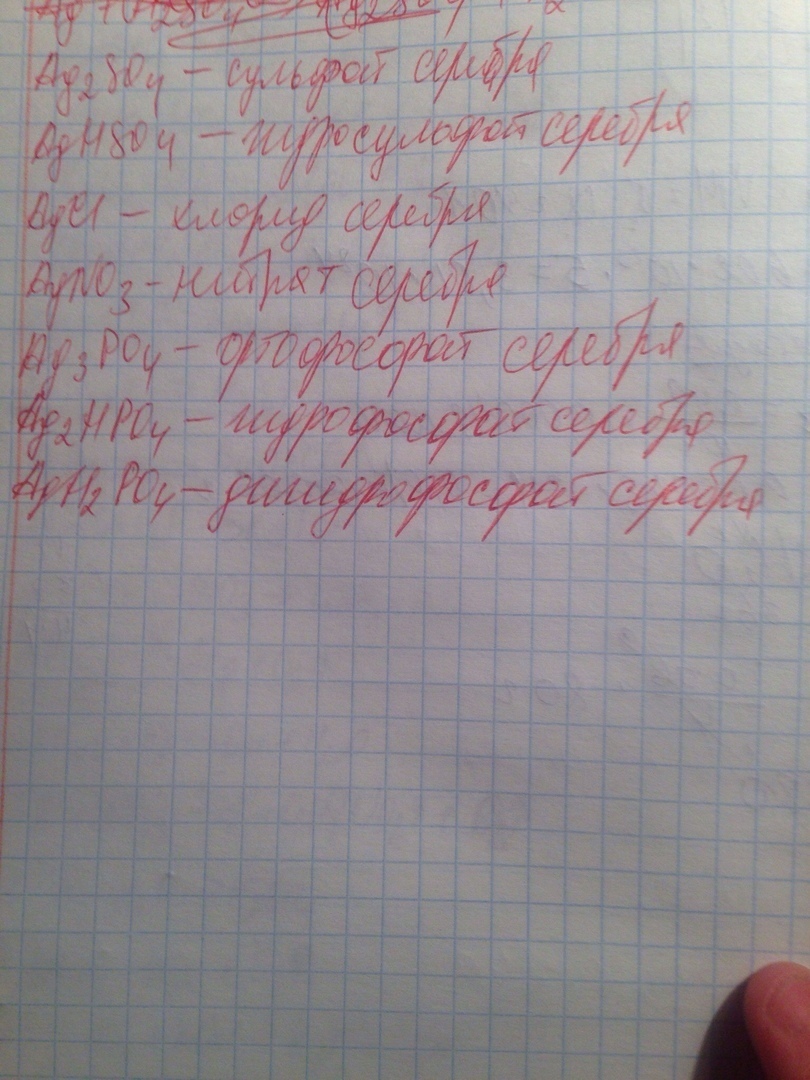 Ag₂SO₄ – сульфат серебра
AgHSO₄ – гидросульфат серебра
AgCl – хлорид серебра
AgNO₃ – нитрат серебра
Ag₃PO₄ – ортофосфорат серебра
Ag₂HPO₄ – гидрофосфорат серебра
AgH₂PO₄ – дигидрофосфорат серебра